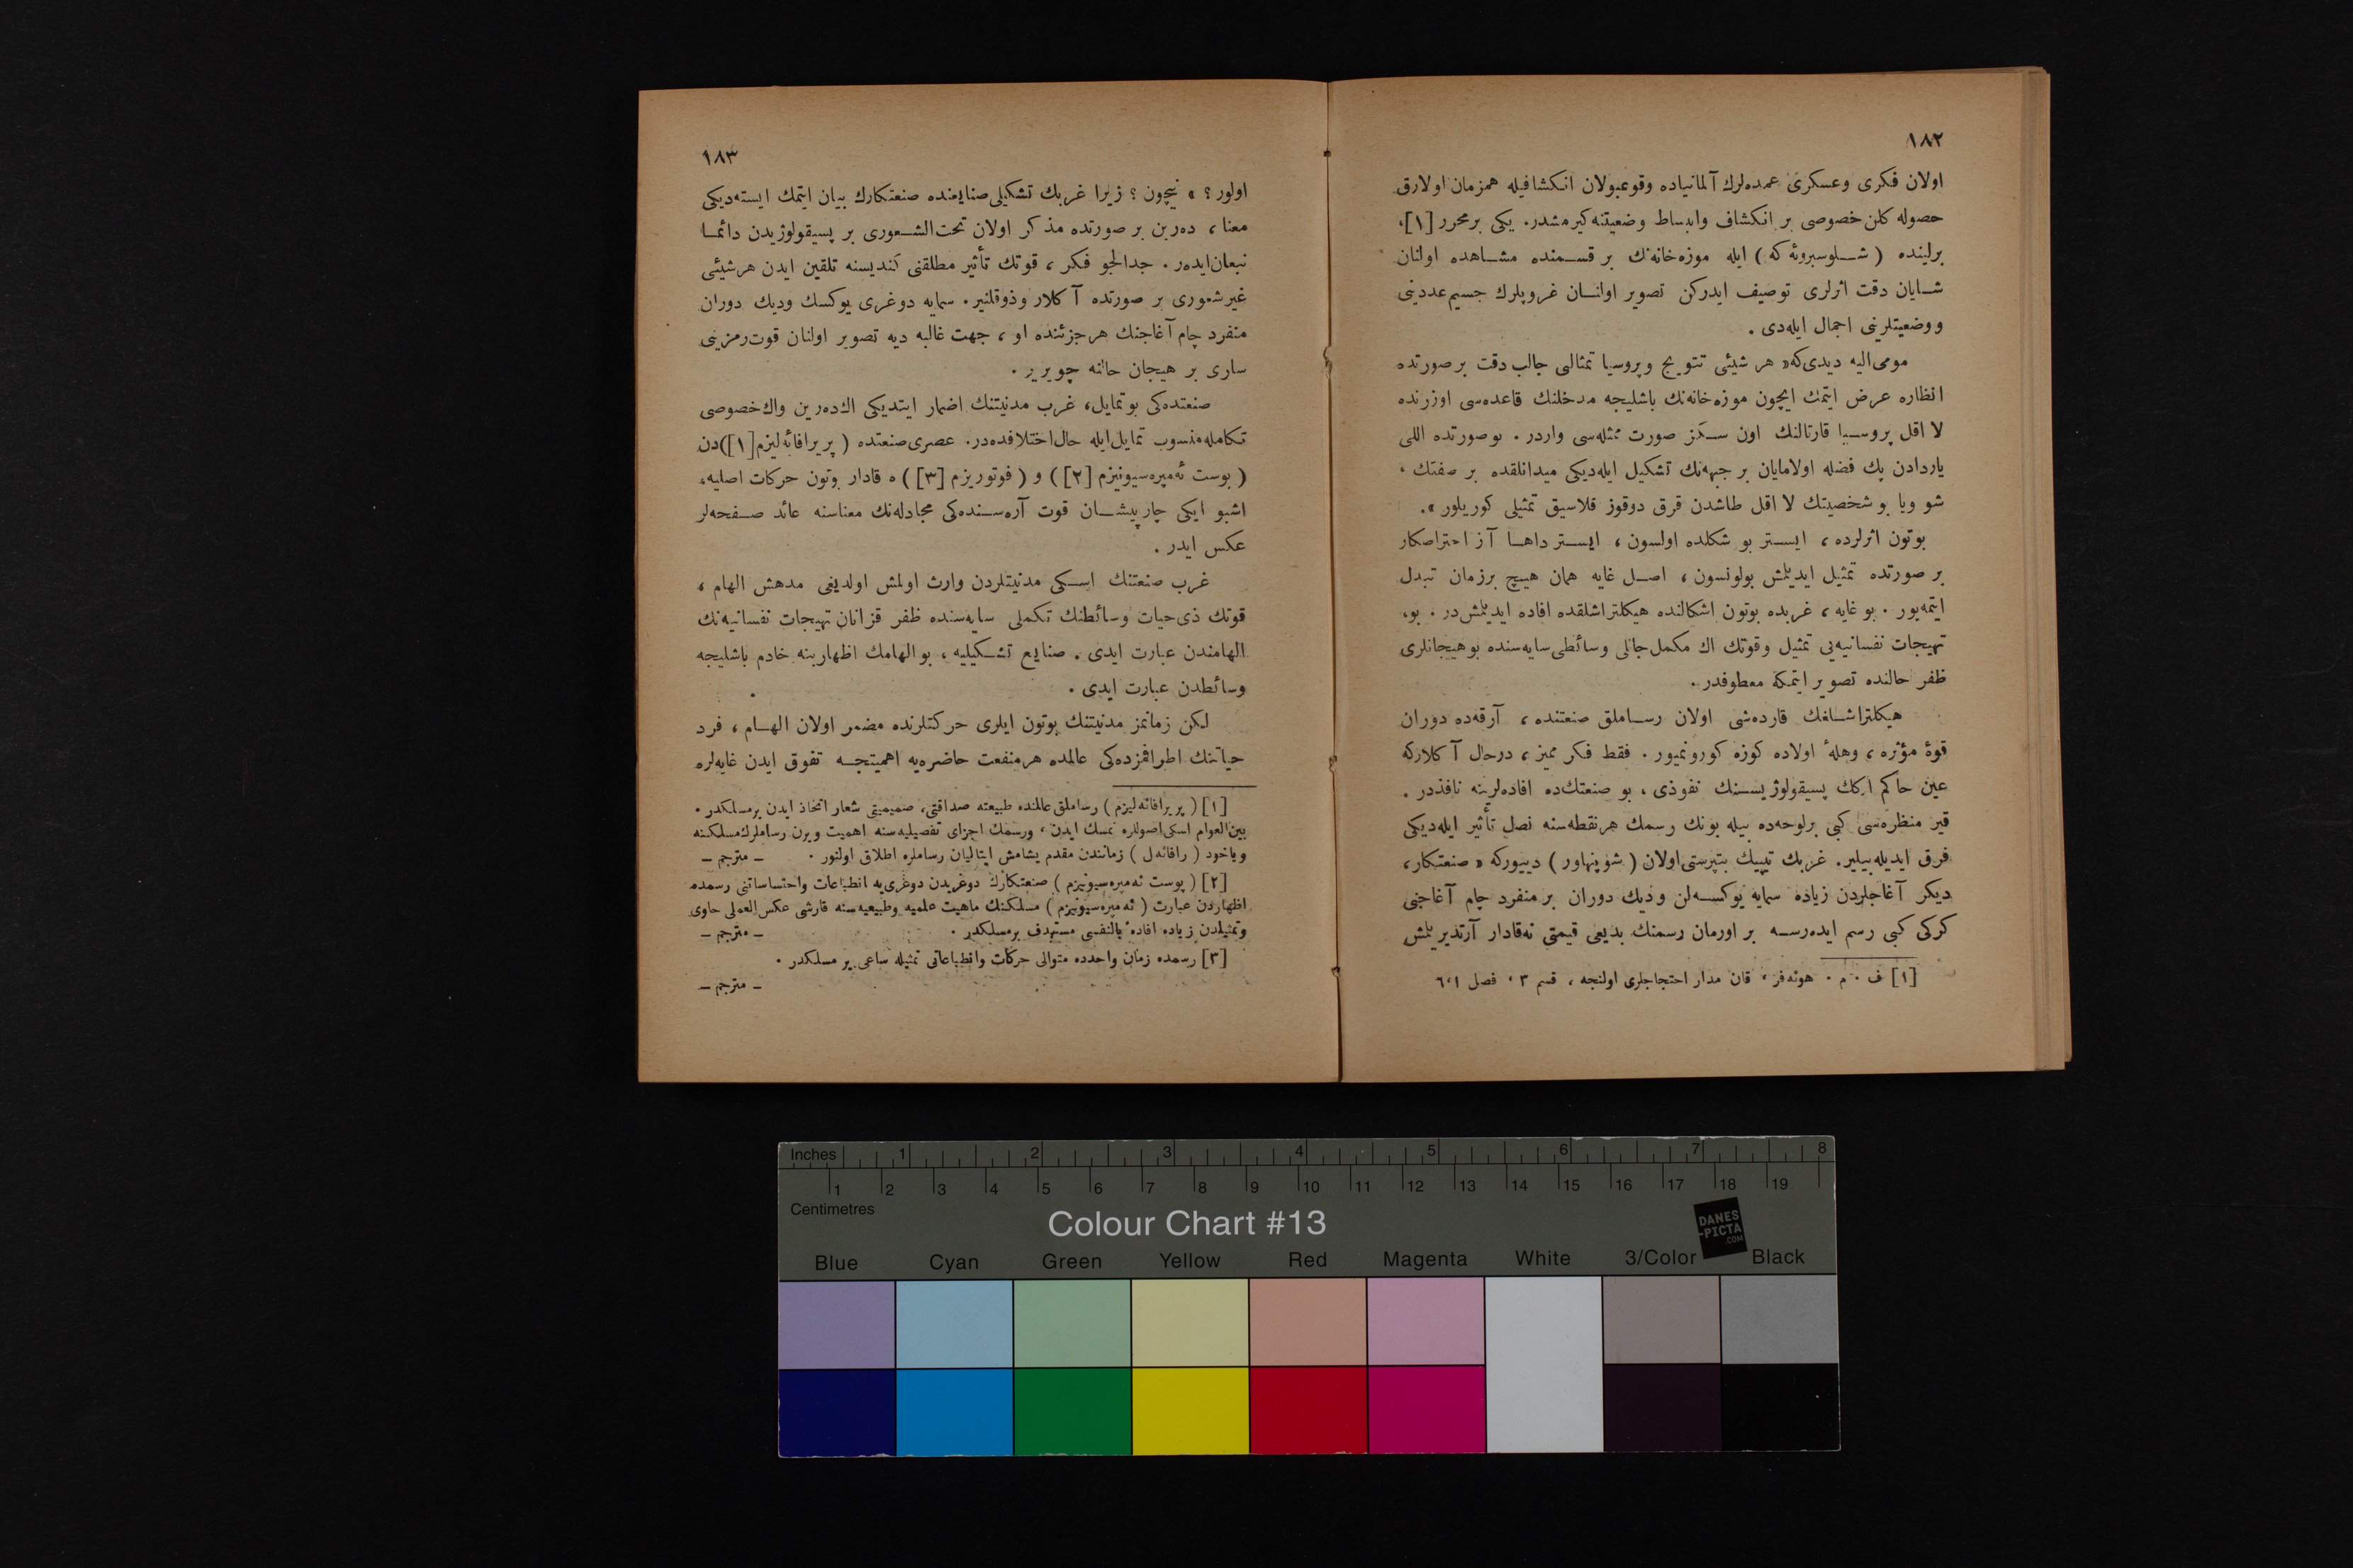 ١٨٢
اولان فكرى وعسكرى عمده‌لرك آلمانياده وقوعبولان انكشافيله همزمان اولارق
حصوله كلن خصوصى بر انكشاف وانبساط وضعيتنه كيرمشدر. يكى برمحرر [١]،
برلينده (شلوسبروئه‌كه) ايله موزه‌خانه‌نك بر قسمنده مشاهده اولنان
شايان دقت اثرلرى توصيف ايدركن تصوير اولنان غروپلرك جسيم عددينى
ووضعيتلرينى اجمال ايله‌دى .
مومى‌اليه ديدى‌كه« هر شيئى تتويج وپروسيا تمثالى جالب دقت برصورتده
انظاره عرض ايتمك ايچون موزه‌خانه‌نك باشليجه مدخلنك قاعده‌سى اوزرنده
لا اقل پروسيا قارتالنك اون سكز صورت ممثله‌سى واردر . بوصورتده اللى
ياردادن پك فضله اولمايان بر جبهه‌نك تشكيل ايله‌ديكى ميدانلقده بر صفتك ،
شو ويا بو شخصيتك لا اقل طاشدن قرق دوقوز قلاسيق تمثيلى كوريلور ».
بوتون اثرلرده ، ايستر بو شكلده اولسون ، ايستر داها آز احتراصكار
بر صورتده تمثيل ايديلمش بولونسون ، اصل غايه همان هيچ برزمان تبدل
ايتمه‌يور . بو غايه ، غربده بوتون اشكالنده هيكلتراشلقده افاده ايديلمش‌در . بو،
تهيجات نفسانيه‌يى تمثيل وقوتك اك مكمل جانلى وسائطى سايه‌سنده بوهيجانلرى
ظفر حالنده تصوير ايتمكه معطوفدر.
هيكلتراشلغك قارده‌شى اولان رساملق صنعتنده ، آرقه‌ده دوران
قوهٔ مؤثره ، وهلهٔ اولاده كوزه كورونميور . فقط فكر مميز ، درحال آكلاركه
عين حاكم اركك پسيقولوژيسنك نفوذى ، بو صنعتك‌ده افاده‌لرينه نافذدر .
قير منظره‌سى كبى برلوحه‌ده بيله بونك رسمك هرنقطه‌سنه نصل تأثير ايله‌ديكى
فرق ايديله‌بيلير. غربك تيپيك بتپرستى‌اولان (شوپنهاور) دييوركه « صنعتكار،
ديكر آغاجلردن زياده سمايه يوكسه‌لن وديك دوران بر منفرد چام آغاجنى
كركى كبى رسم ايده‌رسه بر اورمان رسمنك بديعى قيمتى نه‌قادار آرتديريلمش
[١] ف . م . هوئه‌فر ، قان مدار احتجاجلرى اولنجه ، قسم ٣ ، فصل ٦،١
١٨٣
اولور ؟ » نيچون ؟ زيرا غربك تشكيلى صنايعنده صنعتكارك بيان ايتمك ايسته‌ديكى
معنا ، ده‌رين بر صورتده مذكر اولان تحت‌الشعورى بر پسيقولوژيدن دائما
نبعان‌ايده‌ر . جدالجو فكر ، قوتك تأثير مطلقنى كنديسنه تلقين ايدن هرشيئى
غيرشعورى بر صورتده آكلار وذوقلنير. سمايه دوغرى يوكسك وديك دوران
منفرد چام آغاجنك هرجزئنده او ، جهت غالبه ديه تصوير اولنان قوت‌رمزينى
سارى بر هيجان حالنه چويرير .
صنعتده‌كى بوتمايل، غرب مدنيتنك اضمار ايتديكى اك‌ده‌رين واك‌خصوصى
تكامله‌منسوب تمايل‌ايله حال‌اختلافده‌در. عصرى‌صنعتده ( پريرافائه‌ليزم[١])دن
( پوست ئه‌مپره‌سيونيزم [٢]) و ( فوتوريزم [٣]) ه قادار بوتون حركات اصليه،
اشبو ايكى چارپيشان قوت آره‌سنده‌كى مجادله‌نك معناسنه عائد صفحه‌لر
عكس ايدر .
غرب صنعتنك اسكى مدنيتلردن وارث اولمش اولديغى مدهش الهام ،
قوتك ذى‌حيات وسائطنك تكملى سايه‌سنده ظفر قزانان تهيجات نفسانيه‌نك
الهامندن عبارت ايدى . صنايع تشكيليه ، بوالهامك اظهارينه خادم باشليجه
وسائطدن عبارت ايدى .
لكن زمانمز مدنيتنك بوتون ايلرى حركتلرنده مضمر اولان الهام ، فرد
حياتنك اطرافمزده‌كى عالمده هرمنفعت حاضره‌يه اهميتجه تفوق ايدن غايه‌لره
[١] ( پريرافائه‌ليزم ) رساملق عالمنده طبيعته صداقتى، صميميتى شعار اتخاذ ايدن برمسلكدر .
بين‌العوام اسكى‌اصوللره تمسك ايدن ، ورسمك اجزاى تفصيليه‌سنه اهميت ويرن رساملرك‌مسلكنه
وياخود ( رافائه‌ل ) زمانندن مقدم يشامش ايتاليان رساملره اطلاق اولنور . ـ مترجم ـ
[٢] ( پوست ئه‌مپره‌سيونيزم ) صنعتكارك دوغريدن دوغرى‌يه انطباعات واحتساساتنى رسمده
اظهاردن عبارت ( ئه‌مپره‌سيونيزم ) مسلكنك ماهيت علميه وطبيعيه‌سنه قارشى عكس‌العملى حاوى
وتمثيلدن زياده افادهٔ بالنفسى مستهدف برمسلكدر . ـ مترجم ـ
[٣] رسمده زمان واحدده متوالى حركات وانطباعاتى تمثيله ساعى بر مسلكدر .
ـ مترجم ـ
Inches 1 2 3 4 5 6 7 8
1 2 3 4 5 6 7 8 9 10 11 12 13 14 15 16 17 18 19
Centimetres
Colour Chart #13
DANES
-PICTA
.COM
Blue Cyan Green Yellow Red Magenta White 3/Color Black